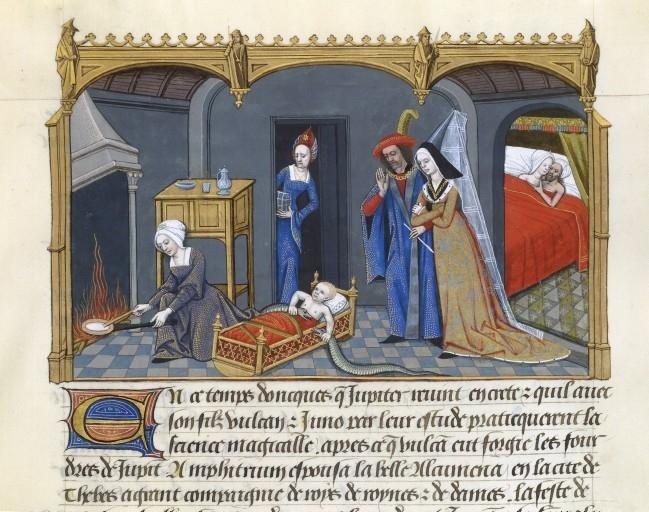 En ce temps doncques q̃ Jupiter vivint en crete & quil avet
son filz vulcan & Juno par leur estude practiquerent la
science magicalle, apres ce q̃ vulcã eut forgie les foul
dres de Jupit Amphitrium espousa la belle Alcumena, en la cite de
Thebes a grant compaignie de roys de roynes & de dames, la feste de